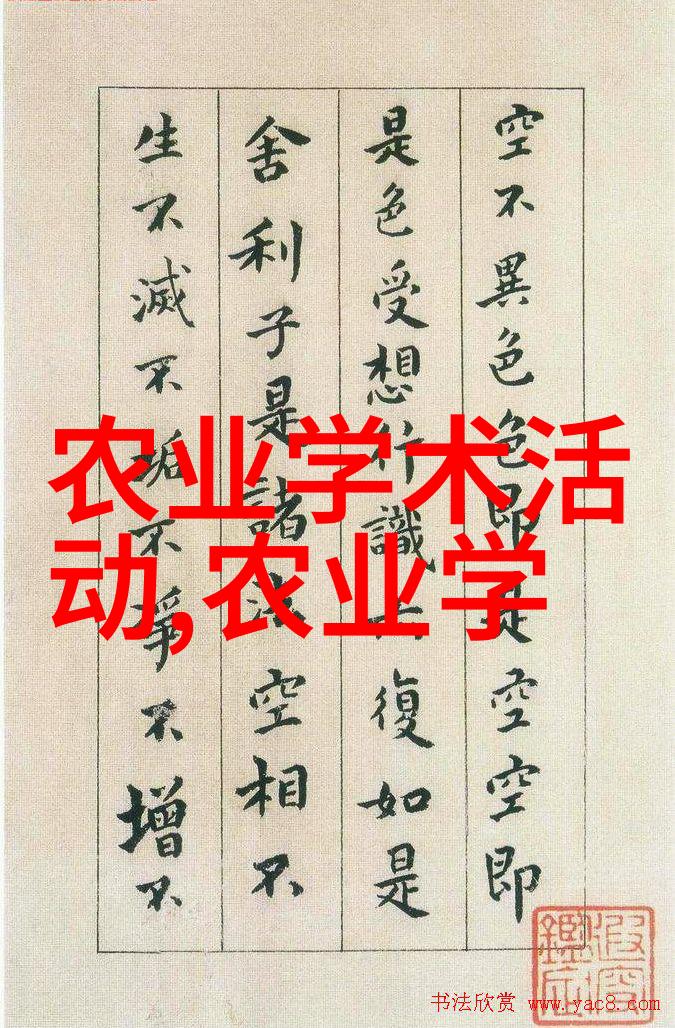 空不異色色即是空空即
是色受想行識亦復如是
舍利子是諸法空相不
生不滅不垢不淨不增不
农业学术活
动,农业学
书法欣赏 www.yac8.com